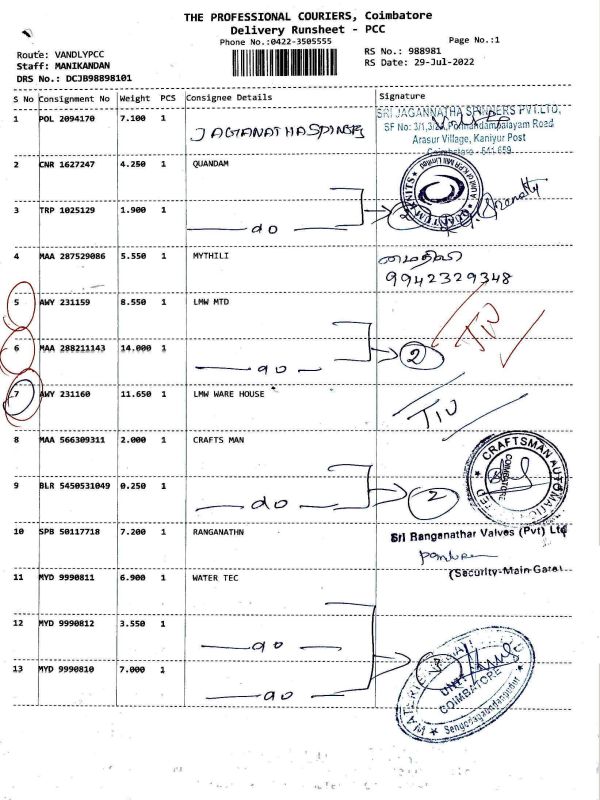 THE PROFESSIONAL COURIERS, Coimbatore
Delivery Runsheet - PCC
Phone No.:0422-3505555
Page No.:1
Route: VANDLYPCC
Staff: MANIKANDAN
DRS No.: DCJB98898101
RS No.: 988981
RS Date: 29-Jul-2022
S No Consignment No Weight PCS Consignee Details Signature
1 POL 2094170 7.100 1 JAGANATHASPINERS
SRI JAGANNATHA SPINNERS PVT.LTD,
SF No: 3/1,3/2A,Ponnandampalayam Road
Arasur Village, Kaniyur Post
Coimbatore - 641 659
2 CNR 1627247 4.250 1 QUANDAM
QUANTUM KNITS
A Unit of K.P.R Mill Limited
3 TRP 1025129 1.900 1 do 2
4 MAA 287529086 5.550 1 MYTHILI மைதிலி
9942329348
5 AWY 231159 8.550 1 LMW MTD
6 MAA 288211143 14.000 1 do 2
7 AWY 231160 11.650 1 LMW WARE HOUSE
8 MAA 566309311 2.000 1 CRAFTS MAN
CRAFTSMAN AUTOMATION
COIMBATORE
9 BLR 5450531049 0.250 1 do 2
10 SPB 50117718 7.200 1 RANGANATHN
Sri Ranganathar Valves (Pvt) Ltd
(Security-Main Gate)
11 MYD 9990811 6.900 1 WATER TEC
12 MYD 9990812 3.550 1 do
13 MYD 9990810 7.000 1 do
UNIT
COIMBATORE